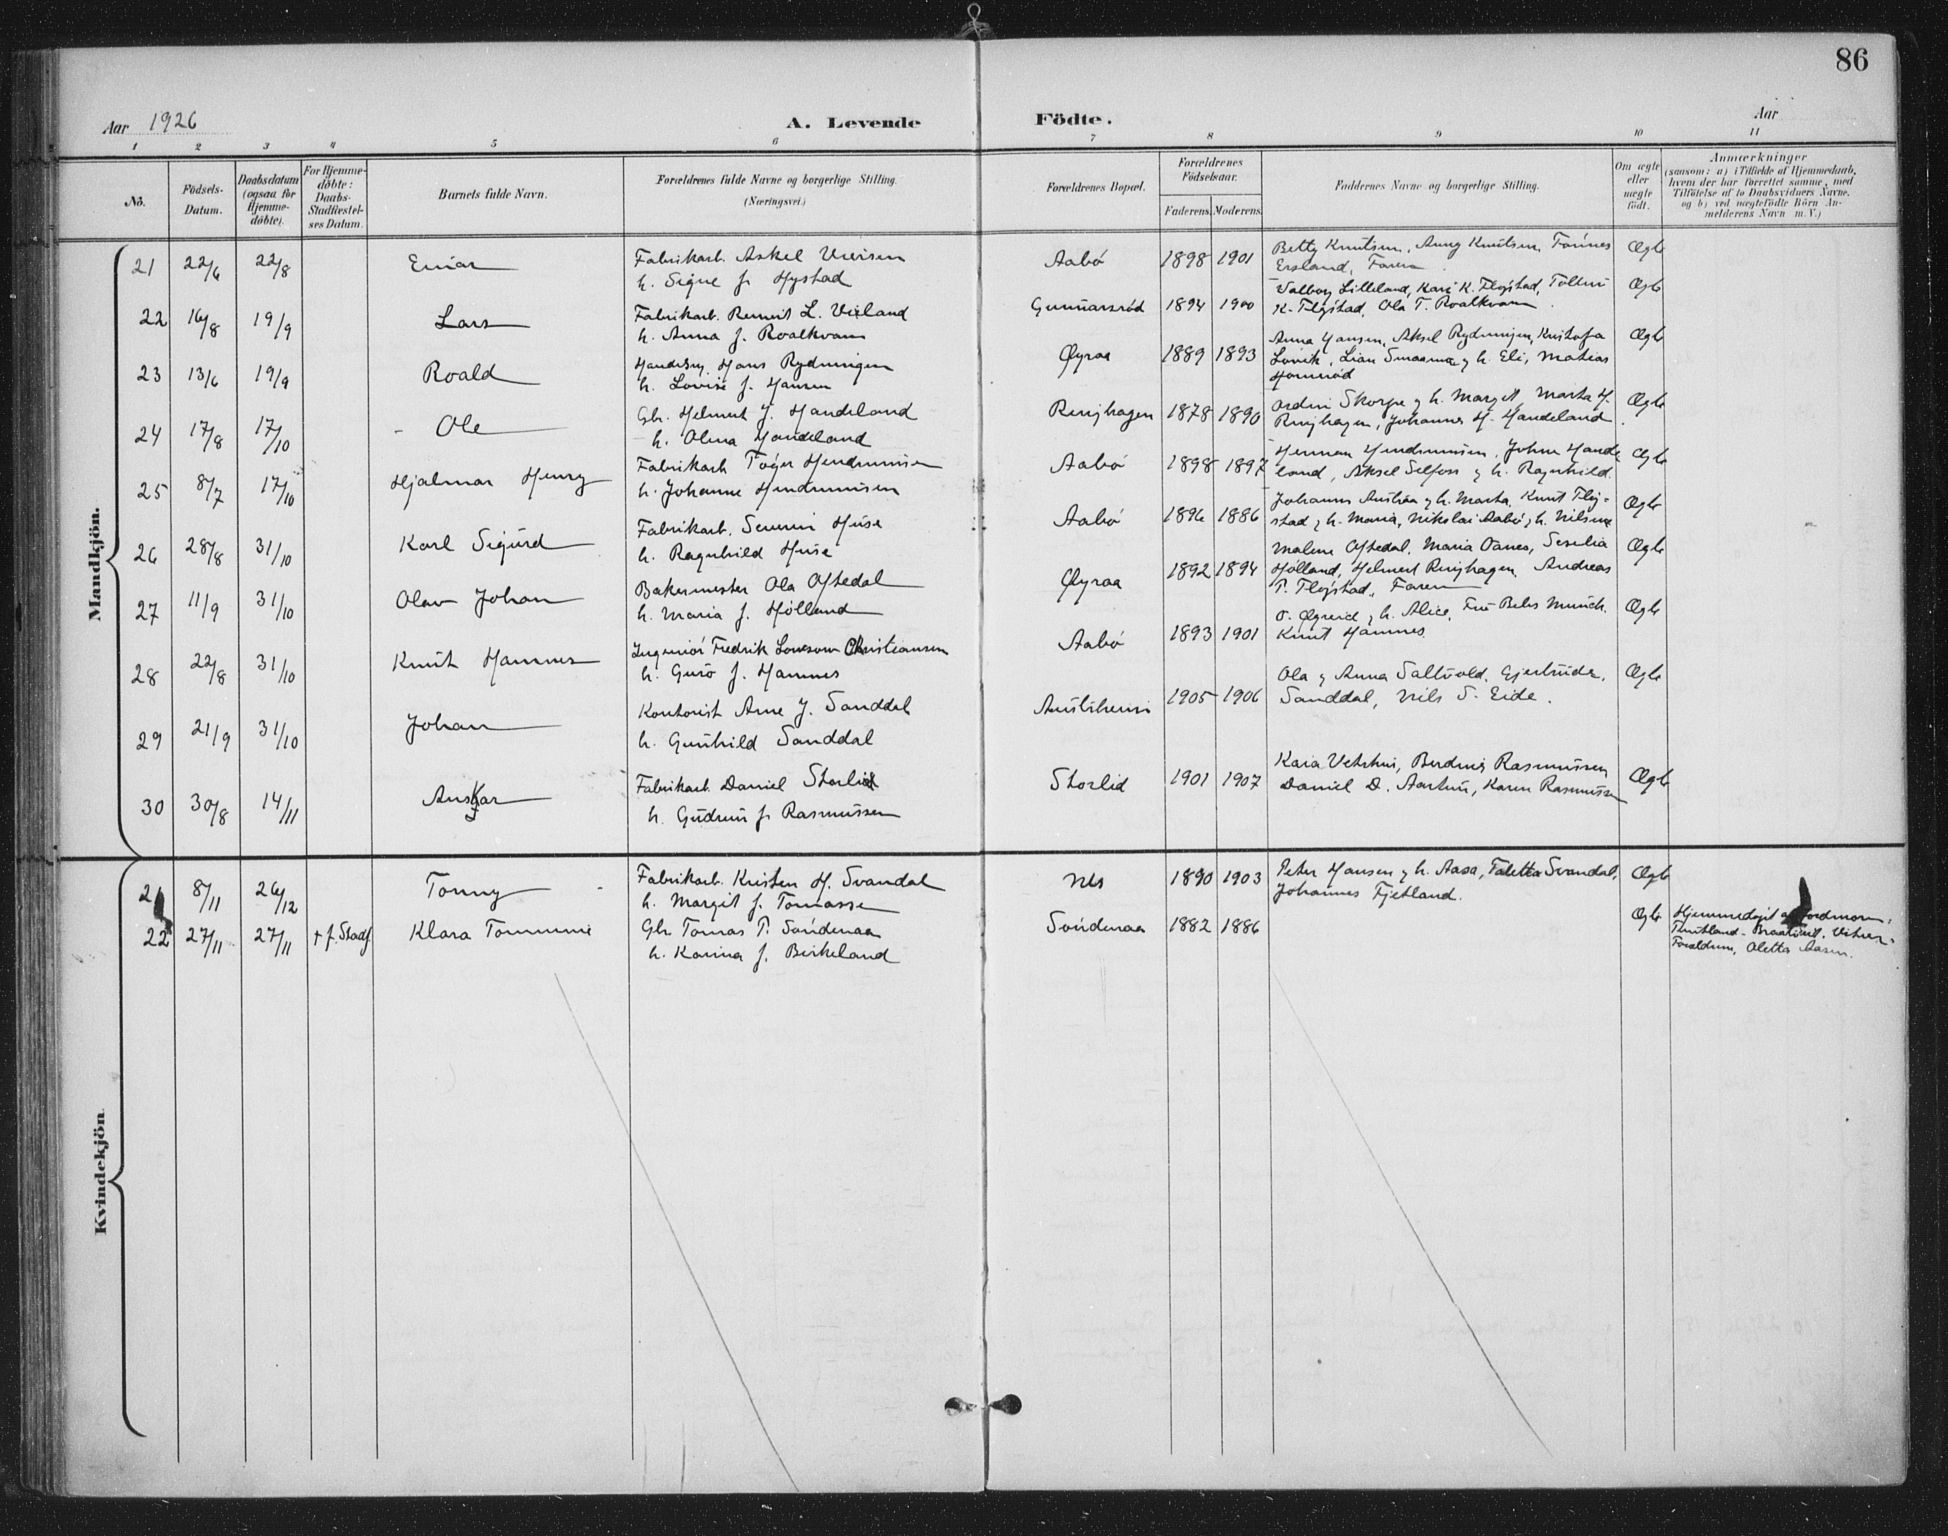 86
Aar 1926
A. Levende Födte.
Aar
1 2 3 4 5 6 7 8 9 10 11
No.
Födsels-Datum.
Daabsdatum (ogsaa for Hjemme-döbte).
For Hjemme-döbte: Daabs-Stadfæstel-ses Datum.
Barnets fulde Navn.
Forældrenes fulde Navne og borgerlige Stilling.
(Næringsvei.)
Forældrenes Bopæl.
Forældrenes Födselsaar.
Faderens. Moderens.
Faddernes Navne og borgerlige Stilling.
Om ægte eller uægte födt.
Anmærkninger
(saasom: a) i Tilfælde af Hjemmedaab,
hvem der har forrettet samme, med
Tilföielse af to Daabsvidners Navne,
og b) ved uægtefödte Börn An-
melderens Navn m. V.)
Mandkjön.
21 22/6 22/8 Einar Fabrikarb. Askel
h. Signe f. Hystad
Aabö 1898 1901 Betty Knutsen, Anny Knutsen, Tönnes
Ersland, Faren. Ægte
22 16/8 19/9 Lars Fabrikarb. Reinert L.
h. Anna f. Roalkvam
Gunnarsröd 1894 1900 Valborg Lilleland, Kari K. Flöjstad,
K. Flöjstad, Ola T. Roalkvam. Ægte
23 13/6 19/9 Roald Hans Rydningen
h. Lovise f. Hansen
Øyraa 1889 1893 Anna Hansen, Aksel Rydningen, Kristofa
Lovik, h. Eli, Matias
Ægte
24 17/8 17/10 Ole Gbr. Helmert J. Handeland
h. Olina Handeland
Ringhagen 1878 1890 Skorpe og h. Margit, Marta H.
Ringhagen, Johannes H. Handeland. Ægte
25 8/7 17/10 Hjalmar Henry Fabrikarb. Töger Hendrunnisen
h. Johanne Hendrunnisen
Aabö 1898 1897 Herman Hendrunnisen, Johan Hande
land, Aksel Selfors og h. Ragnhild. Ægte
26 28/8 31/10 Karl Sigurd Fabrikarb. Severin Huse
h. Ragnhild Huse
Aabö 1896 1886 Johannes Austraa og h. Marta, Knut Flöj-
stad og h. Maria, Nikolai Aabö og h. Ægte
27 11/9 31/10 Olav Johan Bakermester Ola Oftedal
h. Maria f. Hölland
Øyraa 1892 1894 Malene Oftedal, Maria Oanes, Sesilia
Hölland, Helmert Ringhagen, Andreas
T. Flöjstad, Faren Ægte
28 22/8 31/10 Knut Hamnes Ingeniör Fredrik Christiansen
h. Guro f. Hamnes
Aabö 1893 1901 O. Øgreid og h. Alice, Frö Munch
Knut Hamnes. Ægte
29 21/9 31/10 Johan Kontorist Arne J. Sanddal
h. Gunhild Sanddal
Austrheim 1905 1906 Ola og Anna Saltvold, Gjertrude
Sanddal, Nils S. Eide. Ægte
30 30/8 14/11 Ansgar Fabrikarb. Daniel Storlid
h. Gudrun f. Rasmussen
Storlid 1901 1907 Kaia Rasmussen
Daniel D. Aartun, Karen Rasmussen Ægte
Kvindekjön.
21 8/11 26/12 Tonny Fabrikarb. Kristen H. Svandal
h. Margit f. Tomassen
Nes 1890 1903 Peter Hansen og h. Aasa, Taletta Svandal,
Johannes Fjetland. Ægte
22 27/11 27/11 + f. Stadf. Klara Tommine Gbr. Tomas T. Söndenaa
h. Karina f. Birkeland
Söndenaa 1882 1886 Ægte Hjemmedöpt av Jordmoren:
Foreldrene, Oletta Aasen.